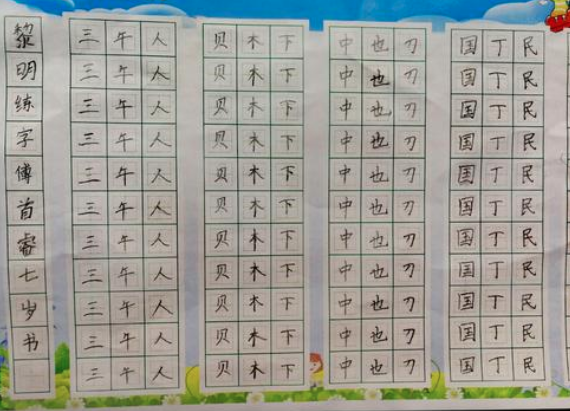 黎明练字傅首睿七岁书
三午人 贝木下 中也刀 国丁民
三午人 贝木下 中也刀 国丁民
三午人 贝木下 中也刀 国丁民
三午人 贝木下 中也刀 国丁民
三午人 贝木下 中也刀 国丁民
三午人 贝木下 中也刀 国丁民
三午人 贝木下 中也刀 国丁民
三午人 贝木下 中也刀 国丁民
三午人 贝木下 中也刀 国丁民
三午人 贝木下 中也刀 国丁民
三午人 贝木下 中也刀 国丁民